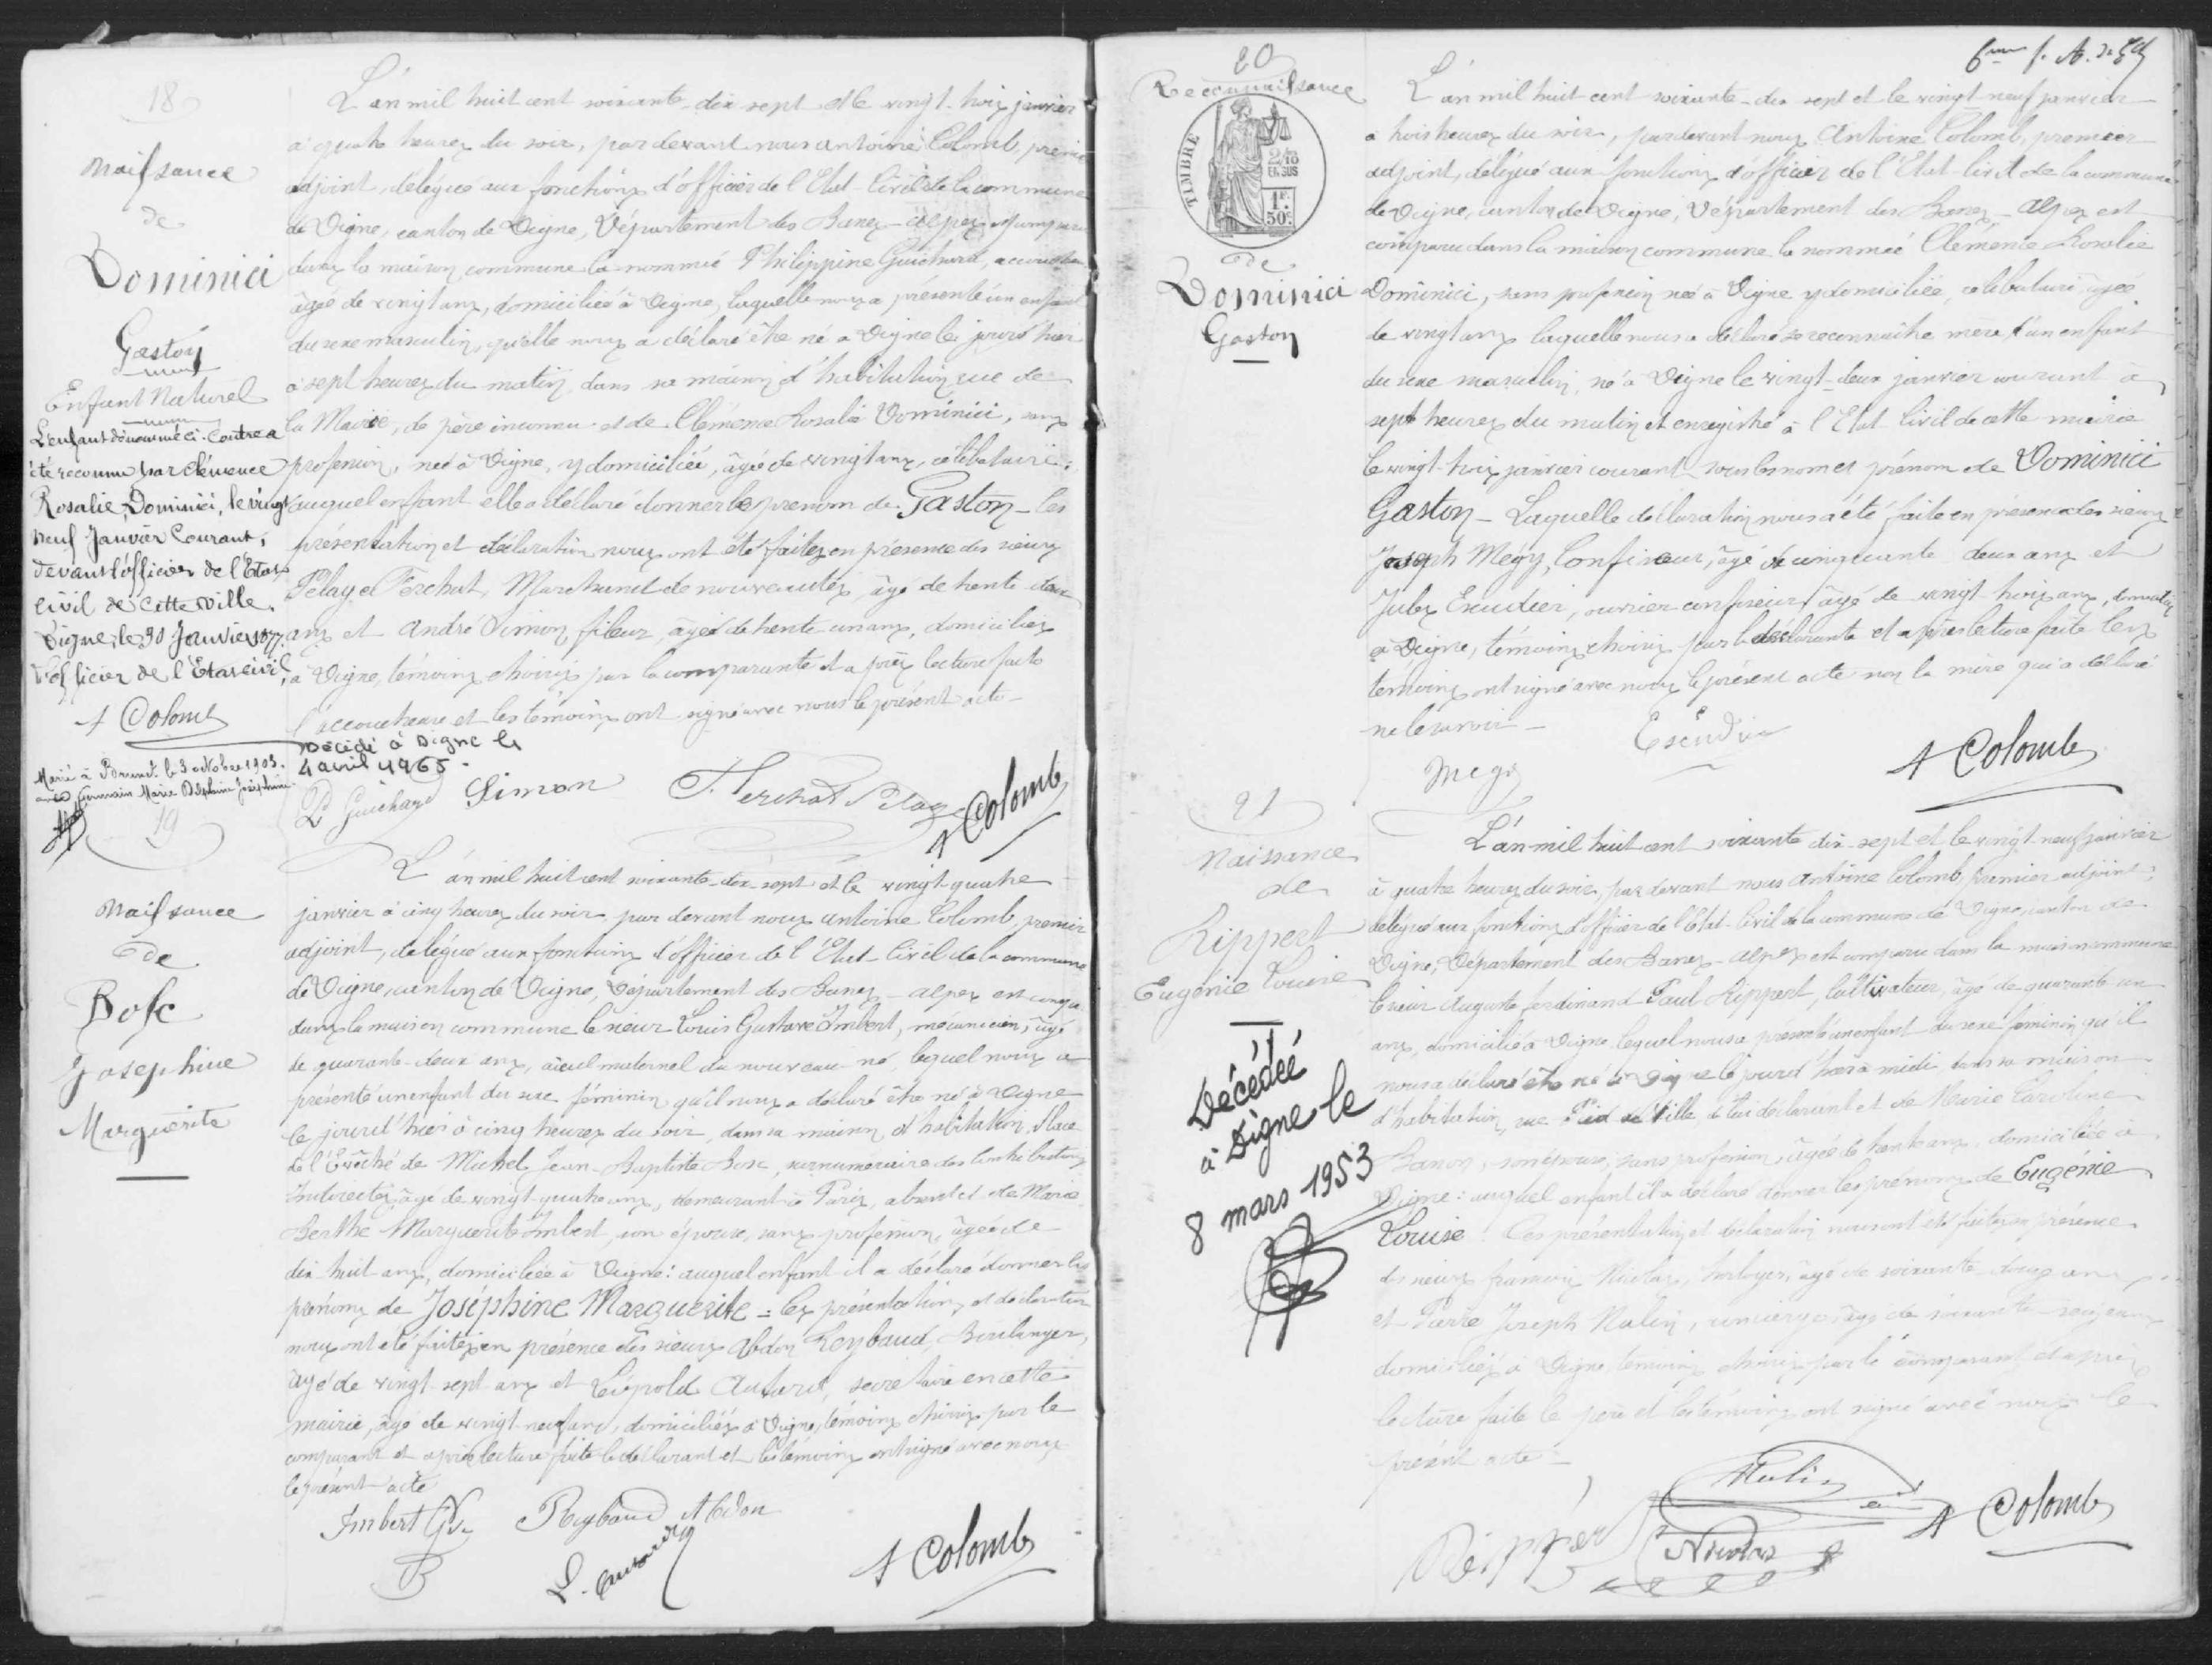 18
Naissance
de
Dominici
Gaston
Enfant Naturel
L'enfant dénommé ci-contre a
été reconnu par Clémence
Rosalie Dominici, le vingt
neuf Janvier Courant,
devant l'officier de l'Etat
civil de cette ville.
Digne, le 30 Janvier 1877
L'officier de l'Etat civil,
A Colomb
Marié à Brunet le 3 octobre 1903.
avec Germain Marie Delphine Joséphine
L'an mil huit cent soixante-dix sept et le vingt-trois janvier
à quatre heures du soir, par devant nous Antoine Colomb, premier
adjoint, délégué aux fonctions d'officier de l'Etat-Civil de la commune
de Digne, canton de Digne, Département des Basses-Alpes est comparue
dans la maison commune la nommée Philippine Guichard, accoucheuse
âgée de vingt ans, domiciliée à Digne, laquelle nous a présenté un enfant
du sexe masculin, qu'elle nous a déclaré être né à Digne le jour d'hier
à sept heures du matin, dans sa maison d'habitation rue de
la Mairie, de père inconnu et de Clémence Rosalie Dominici, sans
profession, née à Digne, y domiciliée, âgée de vingt ans, célibataire;
auquel enfant elle a déclaré donner le prénom de Gaston - les
présentation et déclaration nous ont été faites en présence des sieurs
Pelage Ferchat, Marchand de nouveautés, âgé de trente deux
ans et André Simon, fileur, âgé de trente-un ans, domiciliés
à Digne, témoins choisis par la comparante et après lecture faite
l'accoucheuse et les témoins ont signé avec nous le présent acte -
Décédé à Digne le
4 avril 1965.
P Guichard Simon Ferchat Pelage A Colomb
19
Naissance
de
Bosc
Joséphine
Marguerite
L'an mil huit cent soixante-dix-sept et le vingt-quatre
janvier à cinq heures du soir par devant nous Antoine Colomb, premier
adjoint, délégué aux fonctions d'officier de l'Etat-Civil de la commune
de Digne, canton de Digne, Département des Basses-Alpes est comparu
dans la maison commune le sieur Louis Gustave Imbert, mécanicien, âgé
de quarante-deux ans, aïeul maternel du nouveau-né, lequel nous a
présenté un enfant du sexe féminin qu'il nous a déclaré être né à Digne
le jour d'hier à cinq heures du soir, dans sa maison d'habitation, Place
de l'Evêché de Michel Jean-Baptiste Bosc, surnuméraire des Contributions
Indirectes, âgé de vingt-quatre ans, demeurant à Paris, absent et de Marie
Berthe Marguerite Imbert, son épouse, sans profession, âgée de
dix-huit ans, domiciliée à Digne: auquel enfant il a déclaré donner les
prénoms de Joséphine Marguerite = les présentation et déclaration
nous ont été faites en présence des sieurs Abdon Reybaud, Boulanger,
âgé de vingt-sept ans et Léopold Autard, secrétaire en cette
mairie, âgé de vingt-neuf ans, domiciliés à Digne, témoins choisis par le
comparant et après lecture faite le déclarant et les témoins ont signé avec nous
le présent acte
Imbert Gve Reybaud Abdon
L. Autard A Colomb
20
Reconnaissance
TIMBRE
2/10
EN SUS
1F.
50c.
de
Dominici
Gaston
L'an mil huit cent soixante-dix sept et le vingt-neuf janvier
à trois heures du soir, par devant nous Antoine Colomb, premier
adjoint, délégué aux fonctions d'officier de l'Etat-Civil de la commune
de Digne, canton de Digne, Département des Basses-Alpes est
comparue dans la maison commune la nommée Clémence Rosalie
Dominici, sans profession née à Digne y domiciliée, célibataire âgée
de vingt ans laquelle nous a déclaré se reconnaître mère d'un enfant
du sexe masculin, né à Digne le vingt-deux janvier courant à
sept heures du matin et enregistré à l'Etat Civil de cette mairie
le vingt-trois janvier courant sous les nom et prénom de Dominici
Gaston - Laquelle déclaration nous a été faite en présence des sieurs
Joseph Mégy, Confiseur, âgé de cinquante deux ans et
Jules Escudier, ouvrier confiseur âgé de vingt trois ans, domiciliés
à Digne, témoins choisis par la déclarante et après lecture faite les
témoins ont signé avec nous le présent acte non la mère qui a déclaré
ne le savoir -
Escudier
Mégy A Colomb
21
Naissance
de
Rippert
Eugénie Louise
Décédée
à Digne le
8 mars 1953
L'an mil huit cent soixante dix-sept et le vingt-neuf janvier
à quatre heures du soir, par devant nous Antoine Colomb, premier adjoint,
délégué aux fonctions d'officier de l'Etat-Civil de la commune de Digne, canton de
Digne, Département des Basses-Alpes est comparu dans la maison commune
le sieur Auguste Ferdinand Paul Rippert, Cultivateur, âgé de quarante un
ans, domicilié à Digne lequel nous a présenté un enfant du sexe féminin qu'il
nous a déclaré être né à Digne le jour d'hier à midi dans sa maison
d'habitation, rue Pied de Ville de lui déclarant et de Marie Caroline
Banon, son épouse, sans profession, âgée de trente ans, domiciliée à
Digne: auquel enfant il a déclaré donner les prénoms de Eugénie
Louise. Ces présentation et déclaration nous ont été faites en présence
des sieurs François Nicolas, horloger, âgé de soixante douze ans
et Pierre Joseph Nalin, concierge, âgé de soixante-seize ans
domiciliés à Digne, témoins choisis par le comparant et après
lecture faite le père et les témoins ont signé avec nous le
présent acte -
Nalin
Rippert Nicolas A Colomb